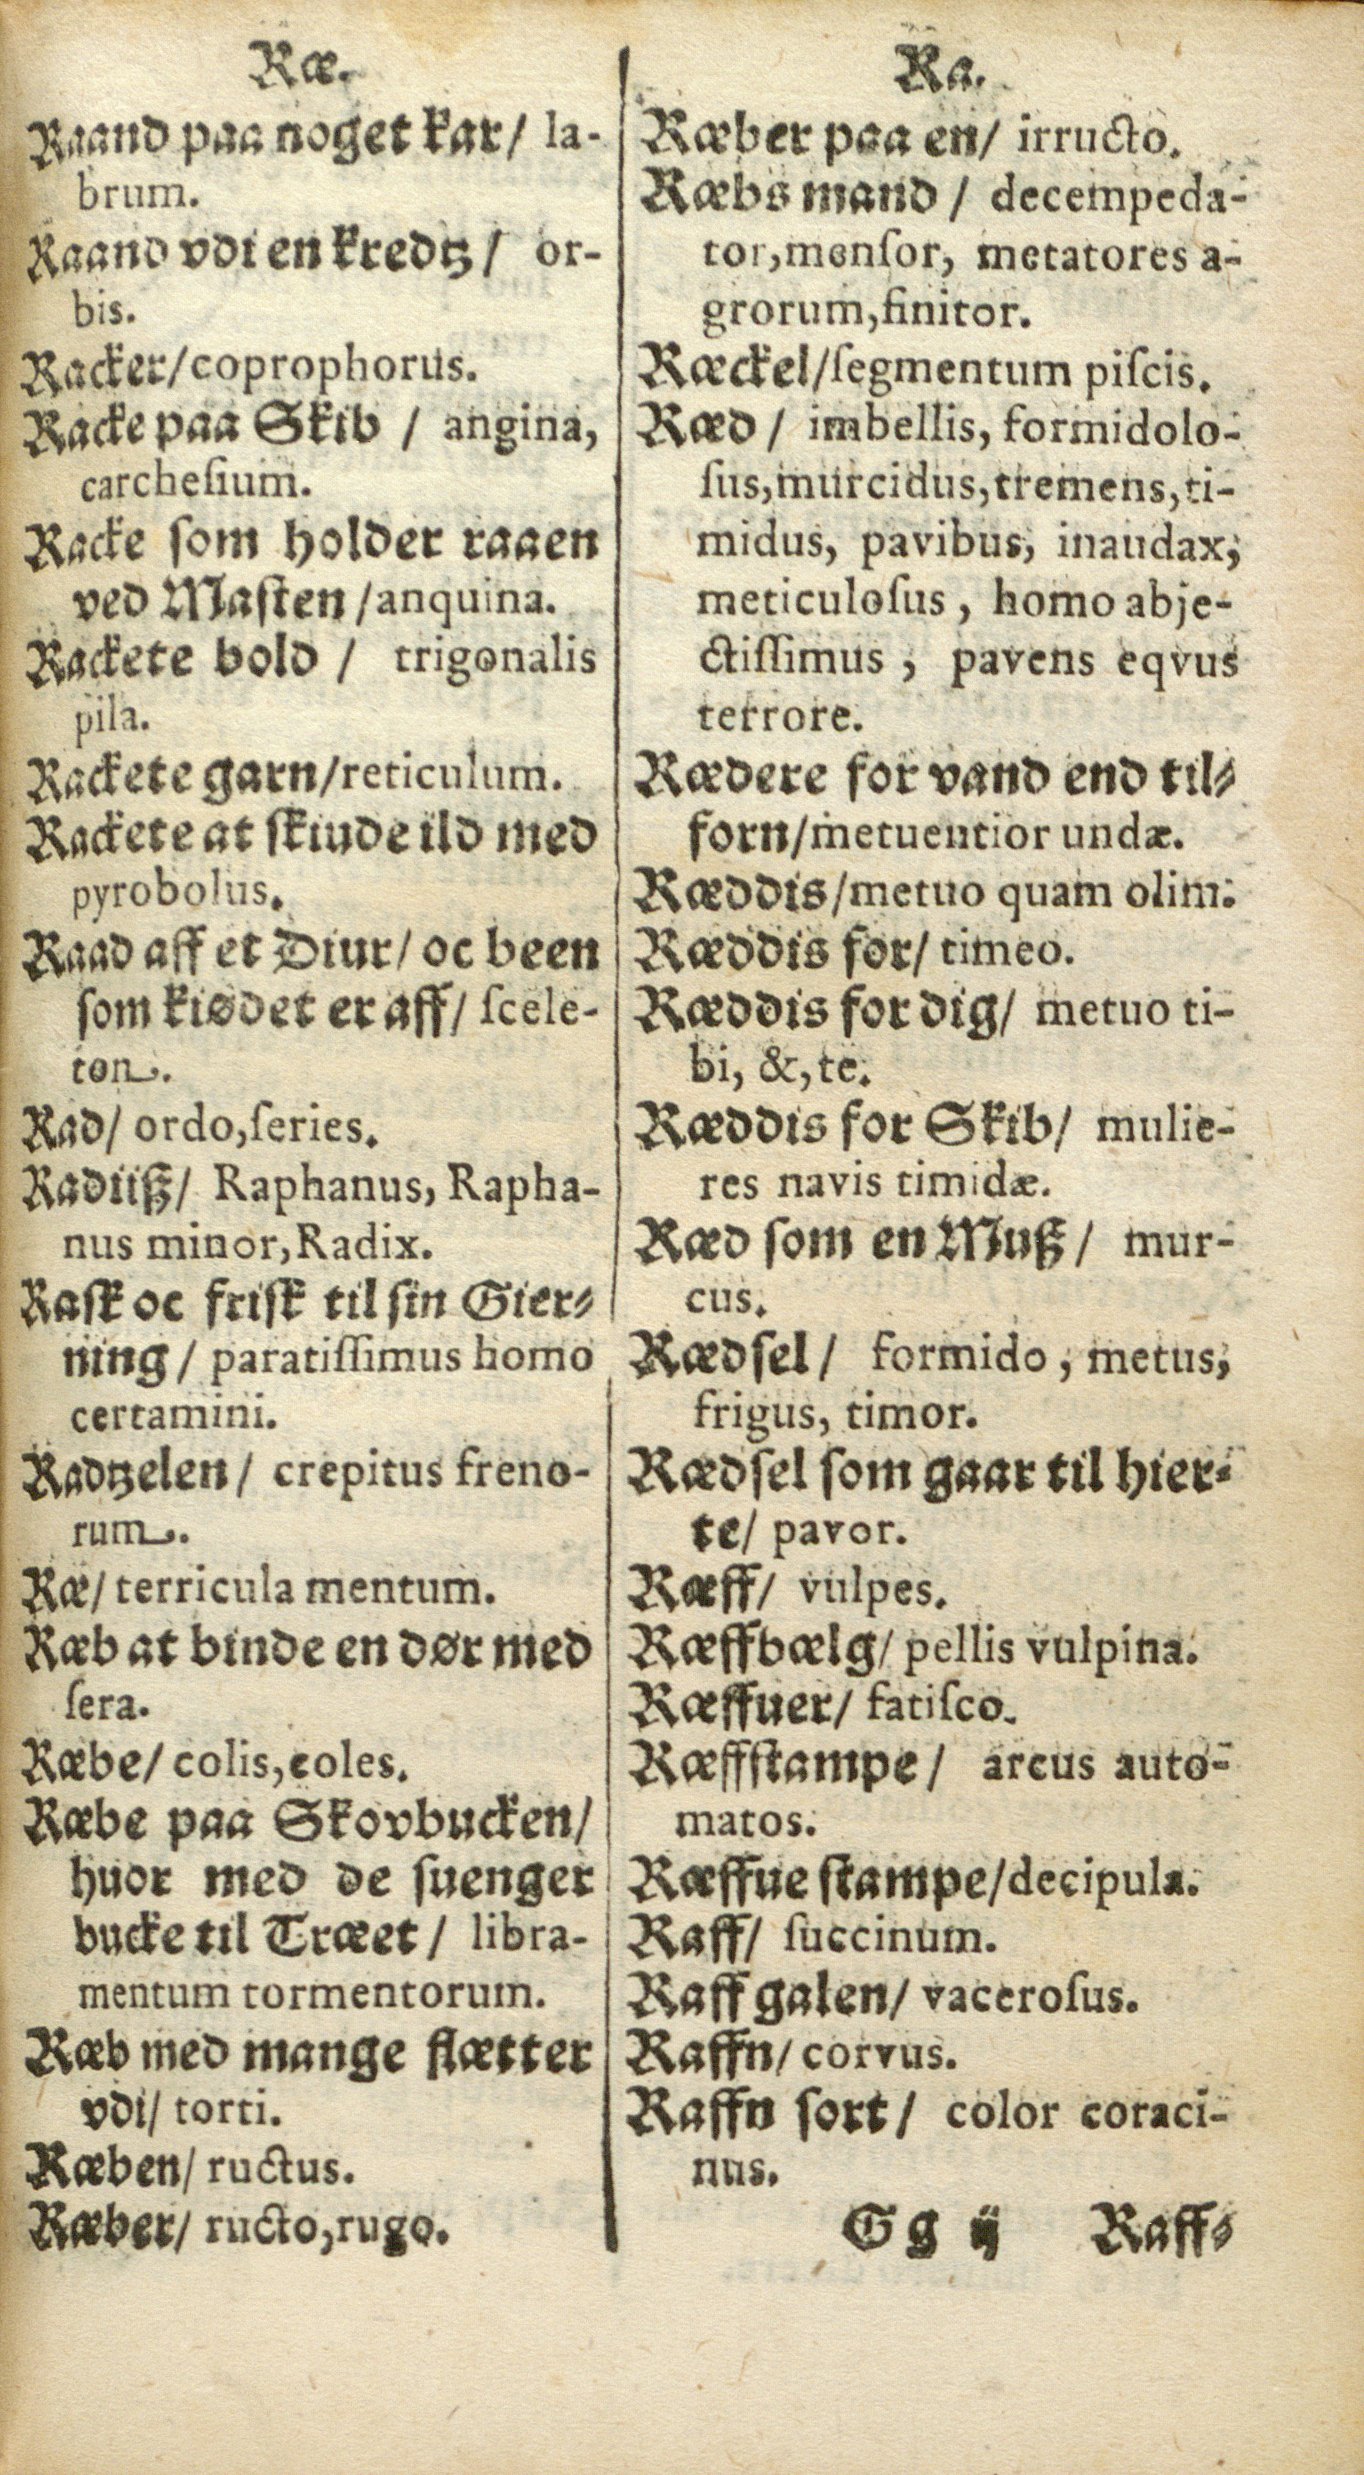 Ræ.
Raand paa noget kar/ la-
brum.
Raand vdi en kredtz/ or-
bis.
Racker/coprophorus.
Racke paa Skib / angina,
carcheſium.
Racke ſom holder raaen
ved Maſten /anquina.
Rackete bold / trigonalis
pila.
Rackete garn/reticulum.
Rackete at ſkiude ild med
pyrobolus.
Raad aff et Diur/ oc been
ſom kiødet er aff/ ſcele-
ton.
Rad/ ordo,ſeries.
Radiiß/ Raphanus, Rapha-
nus minor,Radix.
Raſk oc friſk til ſin Gier-
ning/ paratiſſimus homo
certamini.
Radtzelen/ crepitus freno-
rum.
Ræ/ terricula mentum.
Ræb at binde en dør med
ſera.
Ræbe/ colis,coles.
Ræbe paa Skovbucken/
huor med de ſuenger
bucke til Træet/ libra-
mentum tormentorum.
Ræb med mange flætter
vdi/ torti.
Ræben/ ructus.
Ræber/ ructo,rugo.
Ra.
Ræber paa en/ irructo.
Ræbs mand / decempeda-
tor,menſor, metatores a-
grorum,finitor.
Ræckel/ſegmentum piſcis.
Ræd / imbellis, formidolo-
ſus,murcidus,tremens,ti-
midus, pavibus, inaudax,
meticuloſus, homo abje-
ctiſſimus, pavens eqvus
terrore.
Rædere for vand end til-
forn/metuentior undæ.
Ræddis/metuo quam olim.
Ræddis for/ timeo.
Ræddis for dig/ metuo ti-
bi, &,te.
Ræddis for Skib/ mulie-
res navis timidæ.
Ræd ſom en Muß/ mur-
cus.
Rædſel/ formido, metus,
frigus, timor.
Rædſel ſom gaar til hier-
te/ pavor.
Ræff/ vulpes.
Ræffbælg/ pellis vulpina.
Ræffuer/ fatiſco.
Ræffſtampe/ arcus auto-
matos.
Ræffue ſtampe/decipula.
Raff/ ſuccinum.
Raff galen/ vaceroſus.
Raffn/ corvus.
Raffn ſort/ color coraci-
nus.
G g ij Raff-